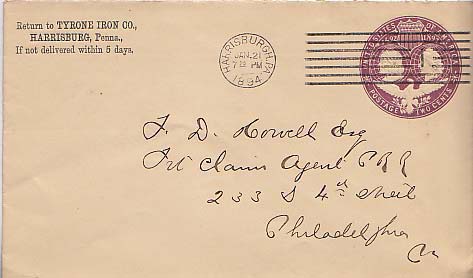 Return to TYRONE IRON CO.,
HARRISBURG, Penna.,
If not delivered within 5 days.
HARRISBURGH, PA.
JAN. 21
7 PM
1894
UNITED STATES OF AMERICA
1492 1892
POSTAGE TWO CENTS
F. D. Howell Esq
Frt Claim Agent P R R
233 S 4th Street
Philadelphia
Pa